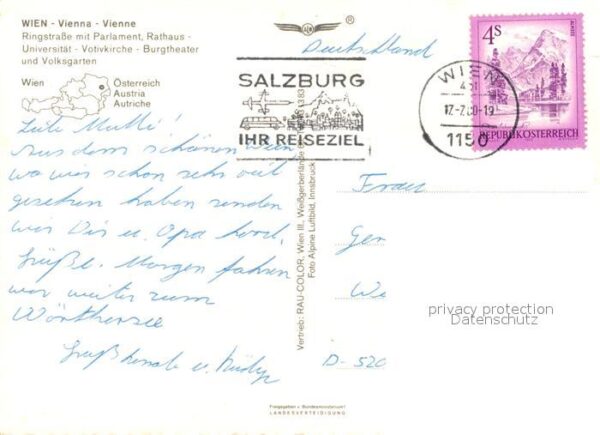 WIEN - Vienna - Vienne
Ringstraße mit Parlament, Rathaus -
Universität - Votivkirche - Burgtheater
und Volksgarten
Wien
Österreich
Austria
Autriche
Deutschland
SALZBURG
IHR REISEZIEL
4S
REPUBLIK ÖSTERREICH
WIEN
1150
Mutti!
Aus dem schönen Wien
wo wir schon sehr viel
gesehen haben senden
wir Dir u. Opa herzl.
Grüße. Morgen fahren
wir weiter zum
Wörthersee
Gruß Renate u.
Frau
Ger
We
D-520
Vertrieb: RAU-COLOR, Wien III., Weißgerberlände
Foto Alpine Luftbild, Innsbruck
privacy protection
Datenschutz
Freigegeben v. Bundesministerium f.
LANDESVERTEIDIGUNG